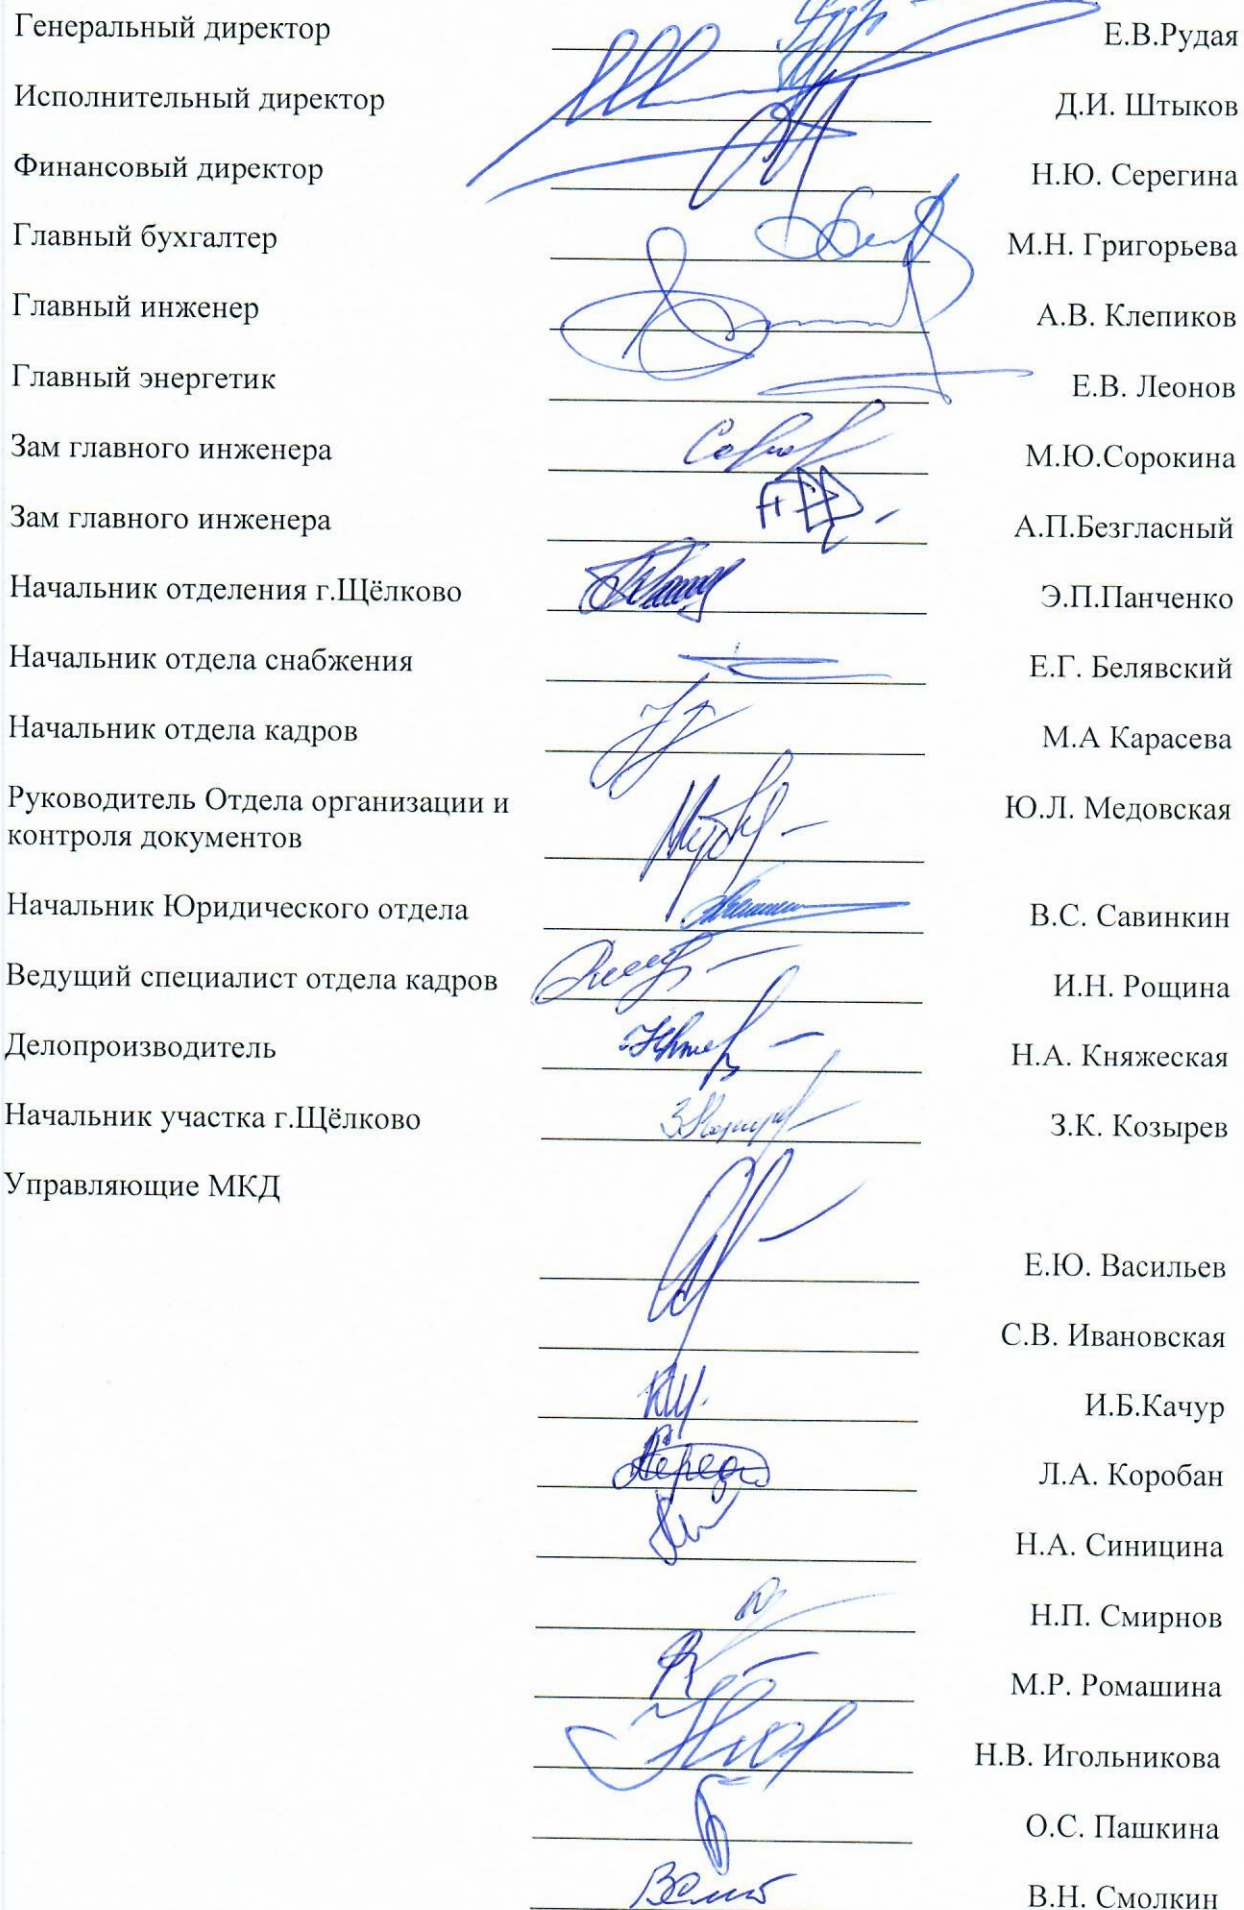 Генеральный директор Е.В.Рудая
Исполнительный директор Д.И. Штыков
Финансовый директор Н.Ю. Серегина
Главный бухгалтер М.Н. Григорьева
Главный инженер А.В. Клепиков
Главный энергетик Е.В. Леонов
Зам главного инженера М.Ю.Сорокина
Зам главного инженера А.П.Безгласный
Начальник отделения г.Щёлково Э.П.Панченко
Начальник отдела снабжения Е.Г. Белявский
Начальник отдела кадров М.А Карасева
Руководитель Отдела организации и Ю.Л. Медовская
контроля документов
Начальник Юридического отдела В.С. Савинкин
Ведущий специалист отдела кадров И.Н. Рощина
Делопроизводитель Н.А. Княжеская
Начальник участка г.Щёлково З.К. Козырев
Управляющие МКД
Е.Ю. Васильев
С.В. Ивановская
И.Б.Качур
Л.А. Коробан
Н.А. Синицина
Н.П. Смирнов
М.Р. Ромашина
Н.В. Игольникова
О.С. Пашкина
В.Н. Смолкин